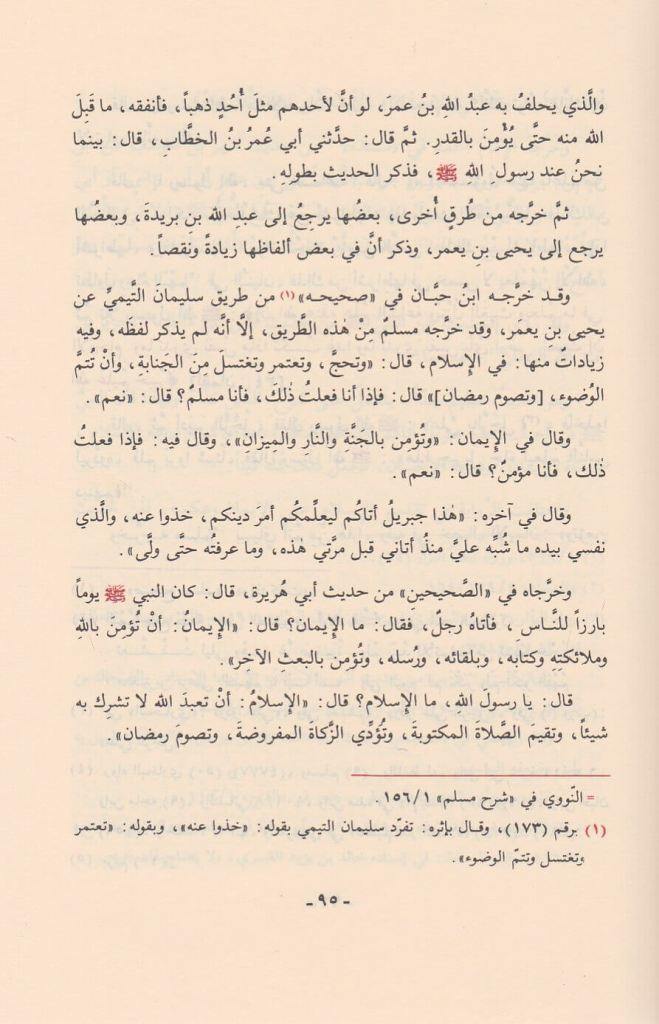 والَّذي يحلفُ به عبدُ اللهِ بنُ عمرَ، لو أنَّ لأحدهم مثلَ أُحُدٍ ذهباً، فأنفقه، ما قَبِلَ
الله منه حتَّى يُؤْمِنَ بالقدرِ. ثمَّ قال: حدَّثني أبي عُمرُ بنُ الخطَّابِ، قال: بينما
نحنُ عند رسولِ اللهِ ﷺ، فذكر الحديث بطولِهِ.
ثمَّ خرَّجه من طُرقٍ أُخرى، بعضُها يرجِعُ إلى عبدِ الله بنِ بريدةَ، وبعضُها
يرجع إلى يحيى بنِ يعمر، وذكر أنَّ في بعض ألفاظها زيادةً ونقصاً.
وقد خرَّجه ابنُ حبَّان في «صحيحه» (١) من طريق سليمانَ التَّيميِّ عن
يحيى بنِ يعمَر، وقد خرَّجه مسلمٌ مِنْ هٰذه الطَّريق، إلَّا أنَّه لم يذكر لفظَه، وفيه
زياداتٌ منها: في الإِسلام، قال: «وتحجَّ، وتعتمر وتغتسلَ مِنَ الجَنابةِ، وأنْ تُتمَّ
الوُضوء، [وتصوم رمضان]» قال: فإذا أنا فعلتُ ذٰلكَ، فأنا مسلمٌ؟ قال: «نعم».
وقال في الإِيمان: «وتُؤمِن بالجَنَّةِ والنَّارِ والمِيزانِ»، وقال فيه: فإذا فعلتُ
ذٰلك، فأنا مؤمنٌ؟ قال: «نعم».
وقال في آخره: «هٰذا جبريلُ أتاكُم ليعلِّمكُم أمرَ دينكم، خذوا عنه، والَّذي
نفسي بيده ما شُبِّه عليَّ منذُ أتاني قبل مرَّتي هٰذه، وما عرفتُه حتَّى ولَّى».
وخرَّجاه في «الصَّحيحينِ» من حديث أبي هُريرة، قال: كان النبي ﷺ يوماً
بارزاً للنَّاس، فأتاهُ رجلٌ، فقال: ما الإِيمان؟ قال: «الإِيمانُ: أنْ تُؤمنَ باللهِ
وملائكتِهِ وكتابه، وبلقائه، ورُسله، وتُؤمن بالبعثِ الآخر».
قال: يا رسولَ اللهِ، ما الإِسلام؟ قال: «الإِسلامُ: أنْ تعبدَ اللهَ لا تشرِك به
شيئاً، وتقيمَ الصَّلاةَ المكتوبةَ، وتُؤدِّي الزَّكاةَ المفروضةَ، وتصومَ رمضان».
= النّووي في «شرح مسلم» ١٥٦/١.
(١) برقم (١٧٣)، وقال بإثره: تفرّد سليمان التيمي بقوله: «خذوا عنه»، وبقوله: «تعتمر
وتغتسل وتتمّ الوضوء».
- ٩٥ -